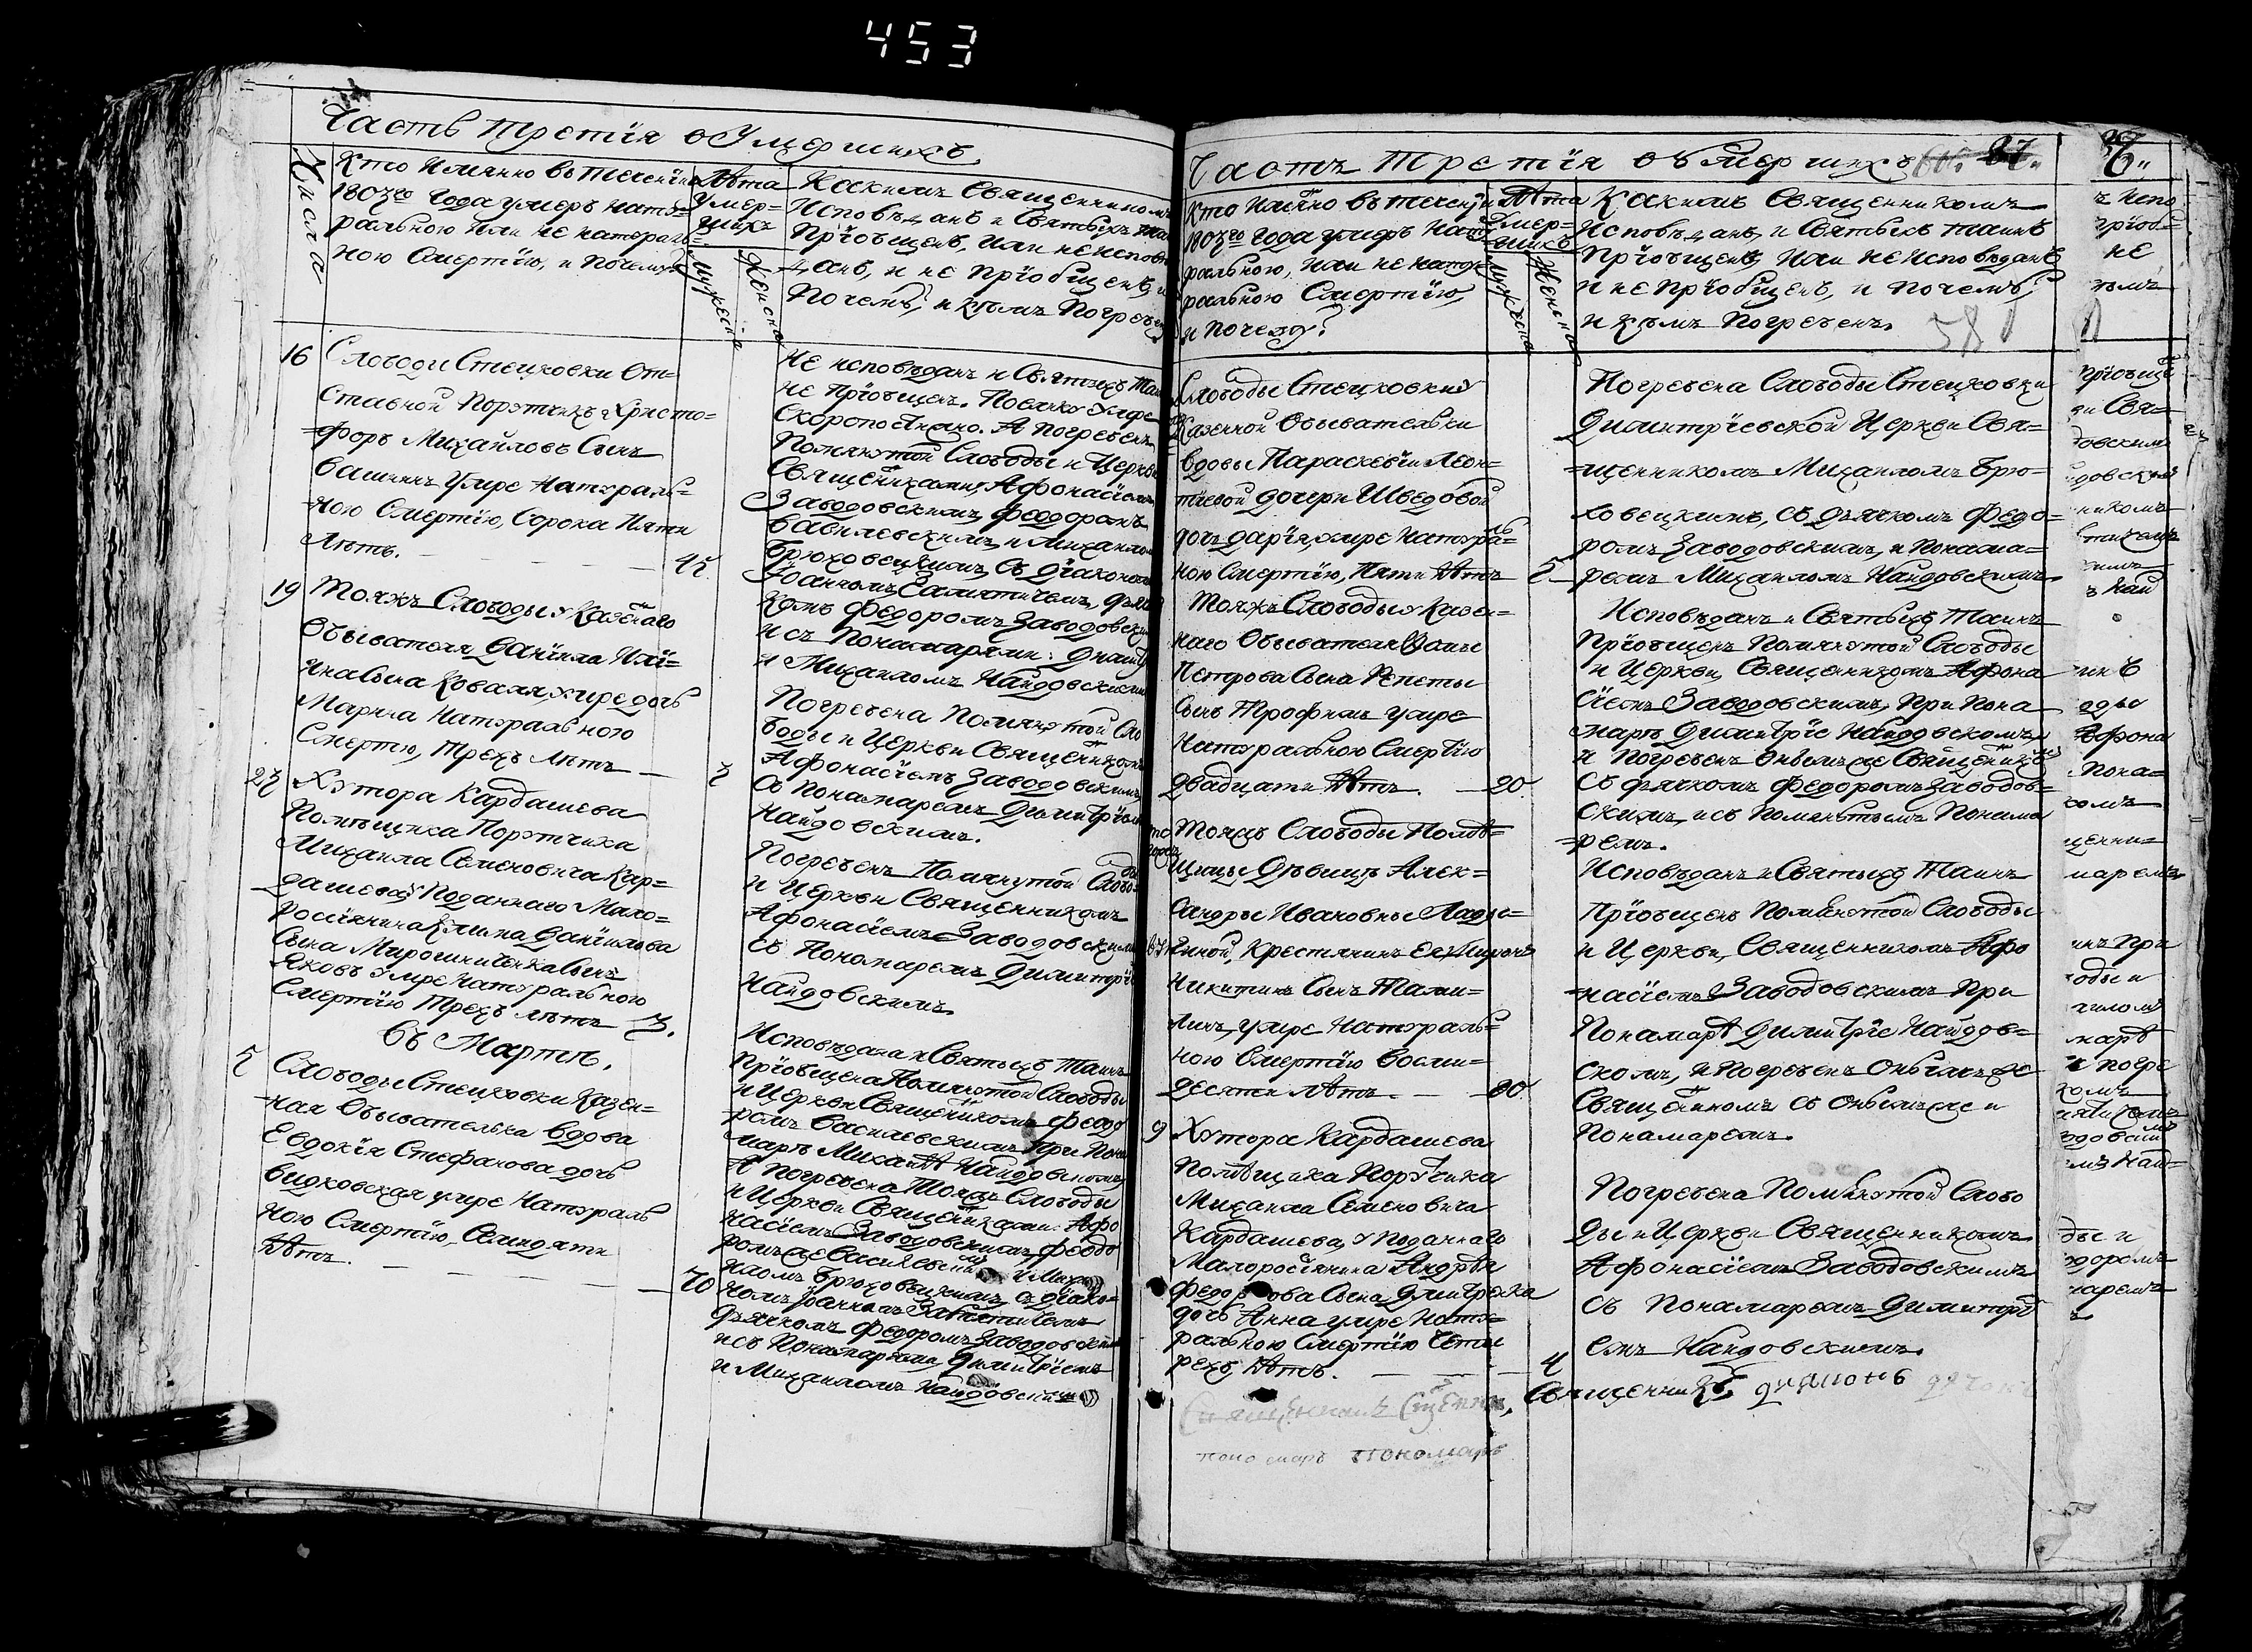 453
Часть третія о Умершихъ
Числа
Кто имянно въ теченіи
1803го Года умеръ нату=
ральною или не натураль=
ною Смертію, и Почему
Лѣта
Умер=
шихъ
Мужеска
Женска
Какимъ Священникомъ
Исповѣданъ и Святыхъ таи
Пріобщенъ, или неисповѣ
данъ, и не пріобщенъ, и
Почему, и кѣмъ Погребен
16 Слободи Стецковки От=
ставной Порутчикъ Христо=
форъ Михайловъ Сынъ
умре Натураль=
ною Смертію, Сорока Пяти
Лѣтъ. 45
Не исповѣданъ и Святыхъ Таи
не Пріобщен. Поелику умре
Скоропостижно. А погребенъ
Помянутой Слободы и Церкви
Священниками, Афонасіемъ
Заводовскимъ, Феодоромъ
Василевскимъ, и Михаило
Брюховецкимъ, Съ діакономъ
Іоанномъ дья
комъ Федоромъ Заводовски
и съ Пономарями: Димит
и Михаиломъ Найдовскими
19 Тояжъ Слободы у Казеннаго
Обывателя Даніила Илі=
ина Сына Коваля, умре дочь
Марина Натуральною
Смертію, Трехъ Лѣтъ 3
Погребена Помянутой Сло
боды и Церкви Священником
Афонасіемъ Заводовскимъ
Съ Понамаремъ Димитріем
Найдовскимъ.
23 Хутора Кардашева
Помѣщика Порутчика
Михаила Семеновича Кар=
дашева, у Подданнаго Мало=
россіянина Клима Данiилова
Сына Мирошниченка Сынъ
Яковъ умре Натуральною
Смертію Трехъ лѣтъ 3.
Погребенъ Помянутой Слобо=
ды
и Церкви Священникомъ
Афонасіемъ Заводовскимъ
Съ Пономаремъ Димитрі
Найдовскимъ
Въ Мартѣ.
5 Слободы Стецковки Казен=
ная Обывателька вдова
Евдокія Стефанова дочь
Видковская умре Натураль
ною Смертію, Семидяти
Лѣтъ. 70
Исповѣдана и Святыхъ Таинъ
Пріобщена Помянутой Слободы
и Церкви Священникомъ Феодо
ромъ Василевскимъ При Поно
марѣ Михаилѣ Найдовскомъ
А погребена Тояжъ Слободы
и Церкви Священниками: Афо
насіемъ Заводовскимъ, Феодо
ромъ же Василевскимъ и Миха
иломъ Брюховецкимъ, съ діако=
номъ Іоанномъ
Дьячкомъ Федоромъ Заводовским
и съ Пономарями, Димитріемъ
и Михаиломъ Найдовскими
Часть Третія о Умершихъ 37.
Кто имянно въ теченіи
1803го Года умеръ Нату
ральною, или не нату
ральною Смертію,
и почему?
Лѣта
Умер=
шихъ
Мужеска
Женска
Какимъ Священникомъ
Исповѣданъ, и Святыхъ таинъ
Пріобщенъ, или не исповѣданъ
и не пріобщенъ, и почему,
и кѣмъ Погребенъ.
58
Слободы Стецковки у
Казенной Обывательки
вдовы Параскевіи Леон=
тіевой дочери Шведовой
дочь Дарія, умре Натураль=
ною Смертію, Пяти Лѣтъ 5
Погребена Слободы Стецковки
Димитріевской Церкви Свя=
щенникомъ Михаиломъ Брю=
ховецкимъ, съ дьячкомъ Федо=
ромъ Заводовскимъ, и Понама=
ремъ Михаиломъ Найдовскимъ
Тояжъ Слободы у Казен=
наго Обывателя Фомы
Петрова Сына Репеты
Сынъ Трофимъ умре
Натуральною Смертію
Двадцати Лѣтъ. 20.
Исповѣданъ и Святыхъ Таинъ
Пріобщенъ Помянутой Слободы
и Церкви, Священникомъ Афона
сіемъ Заводовскимъ, при Пона
марѣ Димитріе Найдовскомъ,
и Погребенъ Онымъ же Священник
Съ дьячкомъ Федоромъ Заводов=
скимъ, и съ Помянутымъ Понама
ремъ.
Тояжъ Слободы Помѣ=
щицы Дѣвицы Алек=
сандры Ивановны Лады=
женной, Крестьянинъ Ея Миронъ
Никитинъ Сынъ Тами=
линъ, умре Натураль=
ною Смертію Восми=
десяти Лѣтъ. 80.
Исповѣданъ и Святыхъ Таинъ
Пріобщенъ Помянутой Слободы
и Церкви, Священникомъ Афо
насіемъ Заводовскимъ При
Понамарѣ Димитріе Найдов=
скомъ, и Погребенъ Онымъ же
Священникомъ съ Онымъ же и
Понамаремъ.
9 Хутора Кардашева
Помѣщика Порутчика
Михаила Семеновича
Кардашева, у Подданнаго
Малоросіянина Андрѣя
Федорова Сына Дмитренка
дочь Анна умре Нату=
ральною Смертію Четы
рехъ Лѣтъ. 4
Погребена Помянутой Слобо
ды и Церкви Священникомъ
Афонасіемъ Заводовскимъ
Съ Понамаремъ Димитрі
емъ Найдовскимъ.
Священникъ
пономарь пономарь